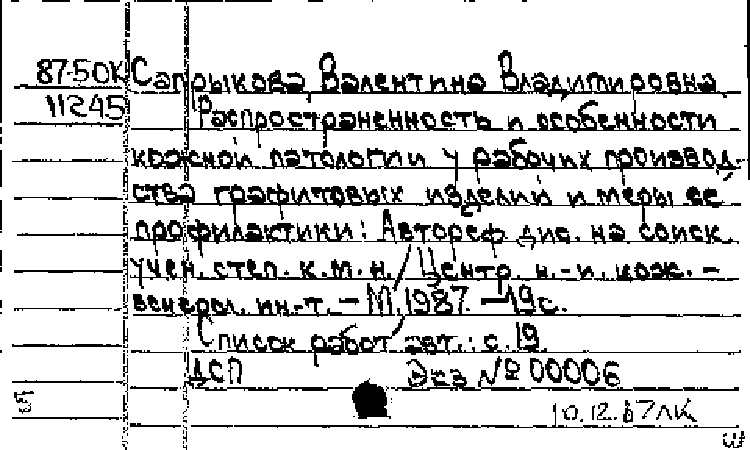 87-50К Сапрыкова Валентина Владимировна
11245 Распространенность и особенности
кожной патологии у рабочих производ-
ства графитовых изделий и меры ее
профилактики: Автореф. дис. на соиск.
учен. степ. к.м.н. / Центр. н.-и. кож.-
венерол. ин-т. - М., 1987. - 19 с.
Список работ авт.: с. 19.
ДСП Экз № 00006
10.12.87 ЛК